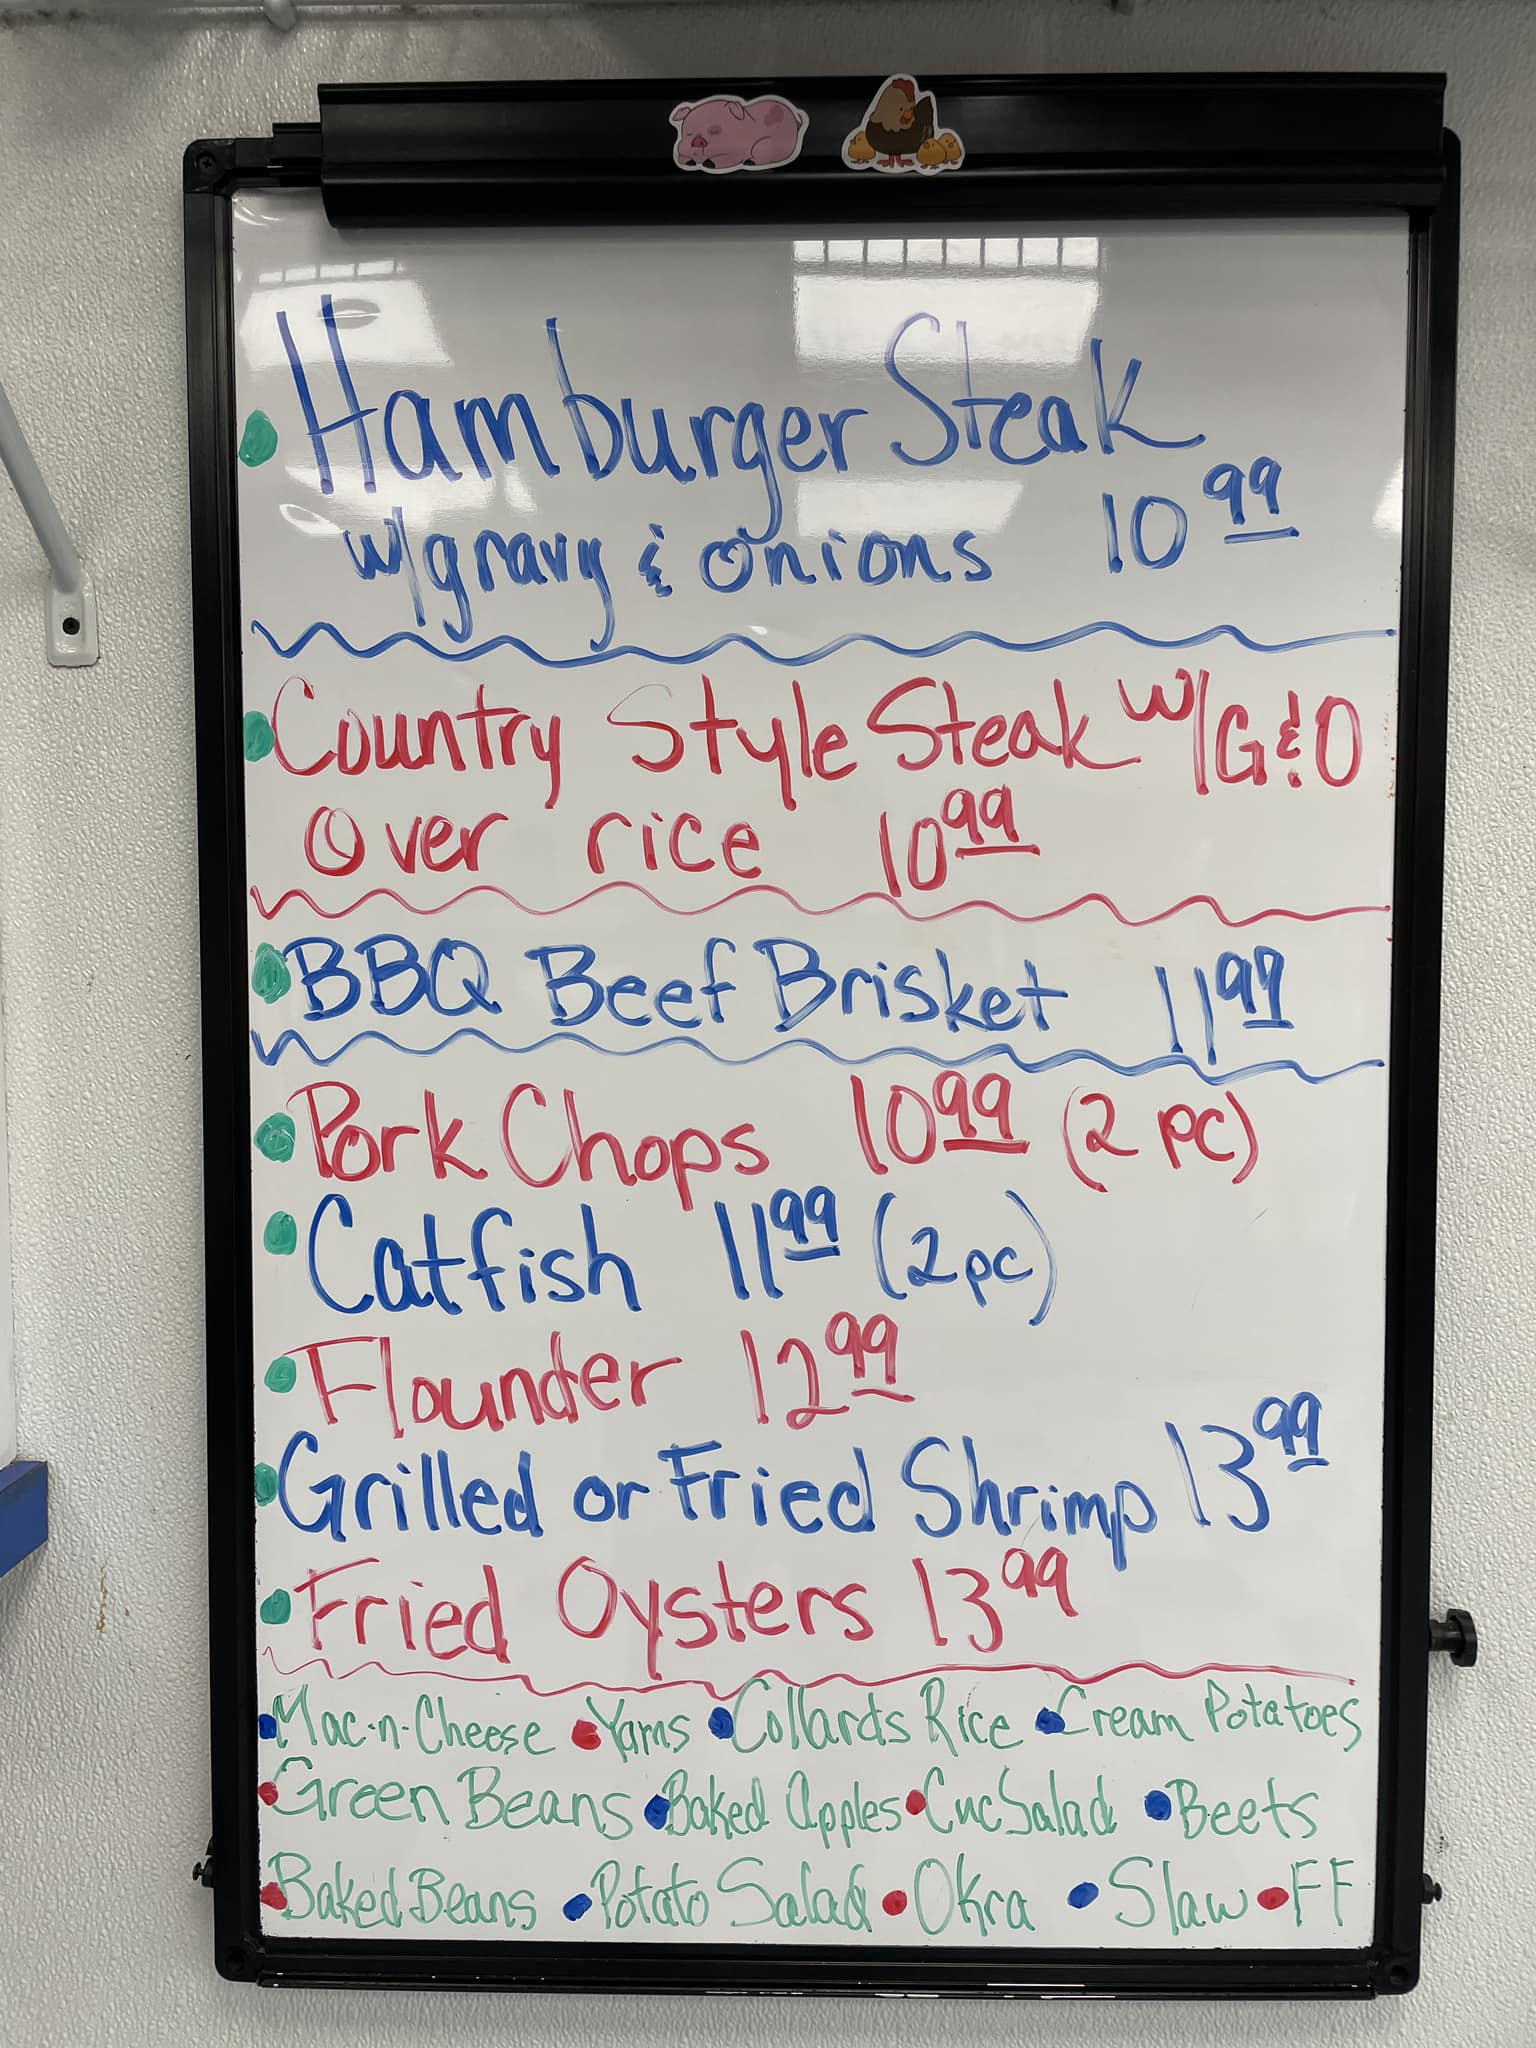 • Hamburger Steak
w/gravy & onions 10 99
• Country Style Steak w/G&O
Over rice 10 99
• BBQ Beef Brisket 11 99
• Pork Chops 10 99 (2 pc)
• Catfish 11 99 (2pc)
• Flounder 12 99
• Grilled or Fried Shrimp 13 99
• Fried Oysters 13 99
• Mac-n-Cheese • Yams • Collards Rice • Cream Potatoes
• Green Beans • Baked Apples • Cuc Salad • Beets
• Baked Beans • Potato Salad • Okra • Slaw • FF